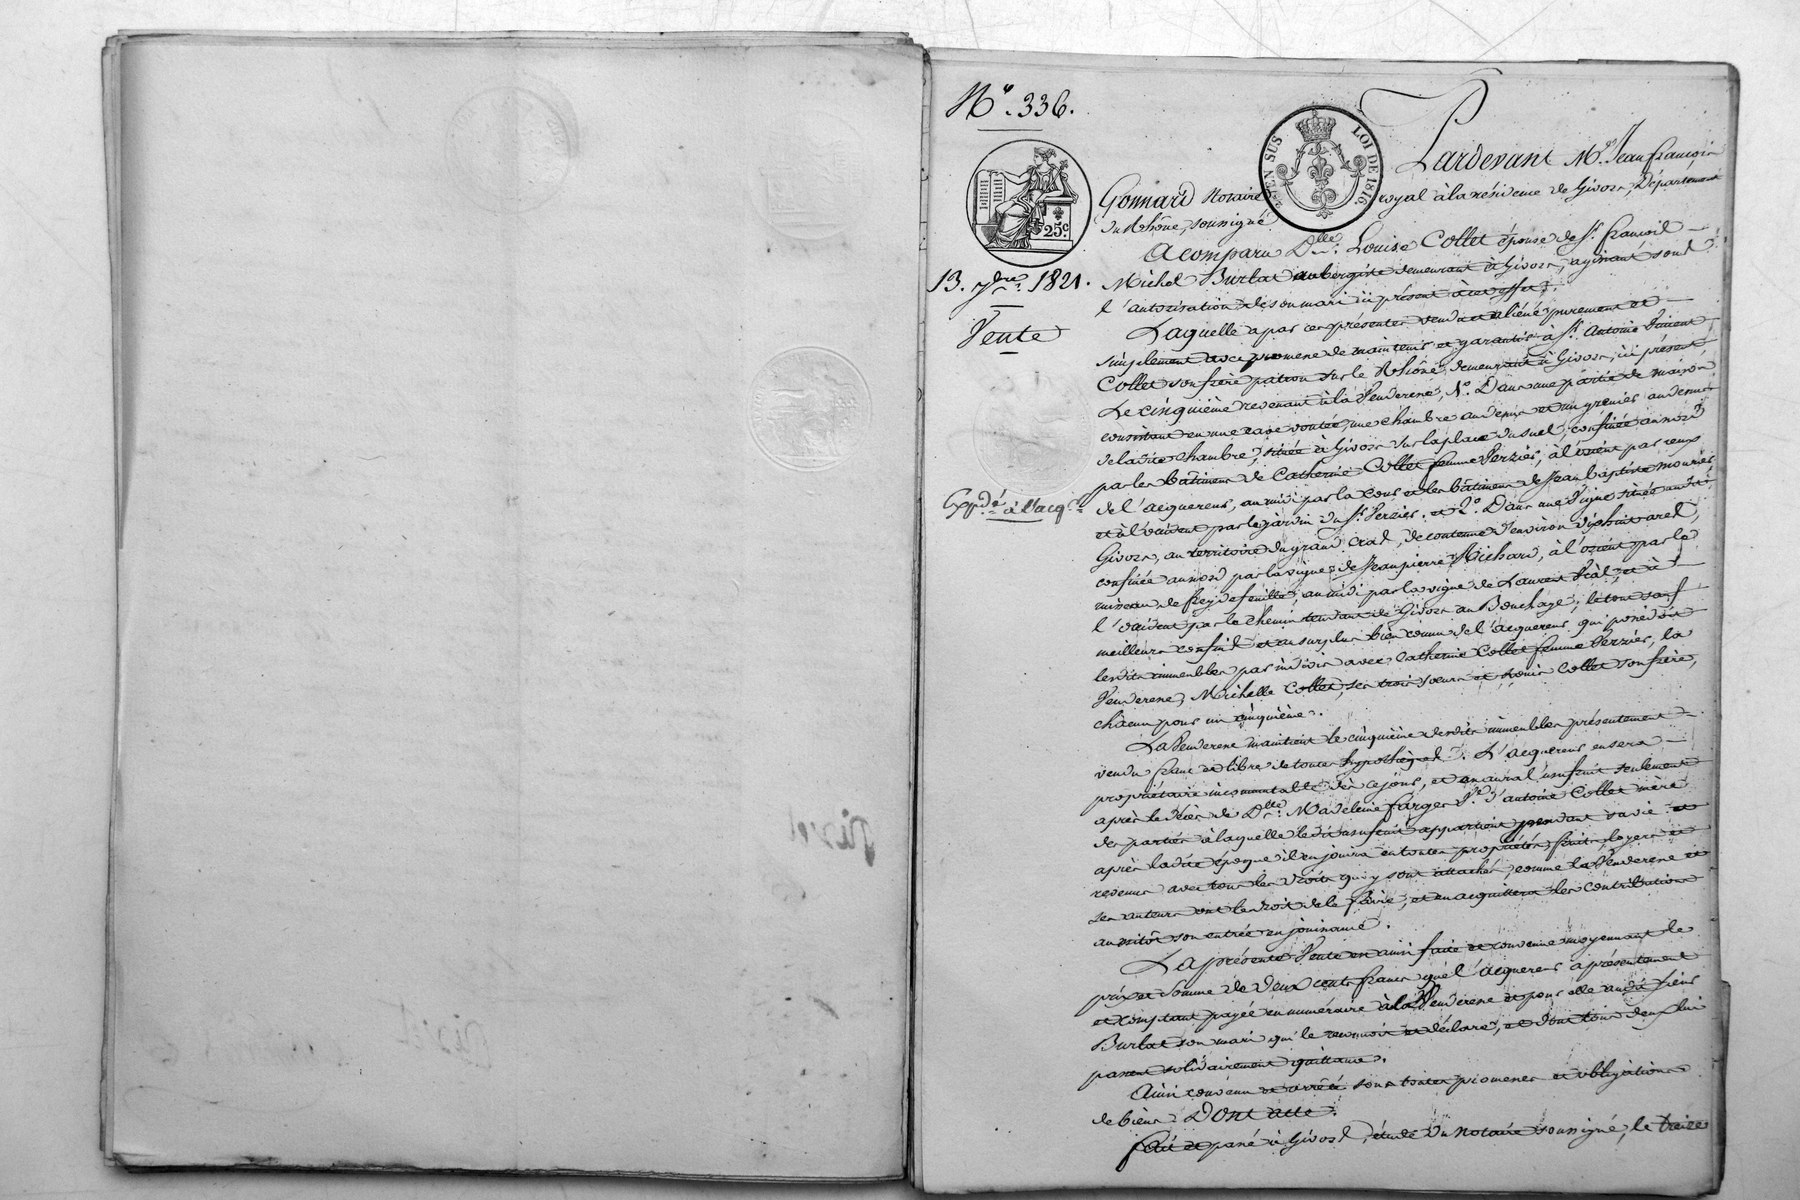 N.° 336.
EN SUS
LOI DE 1816.
25c.
13. 7bre 1821.
Vente
Expd.é à l'acq.r
Pardevant M.e Jean françois
Gonnard Notaire royal à la résidence de Givors, Département
du Rhône, soussigné
A comparu D.lle Louise Collet épouse de S.r françois
Michel Burlat aubergiste demeurant à Givors, agissant sous
l'autorisation de son mari ici présent à cet effet.
Laquelle a par ces présentes vendu et aliéné purement et
simplement avec promesse de maintenir et garantir à S.r Antoine Vincent
Collet son frère patron sur le Rhône, demeurant à Givors, ici présent
Le cinquième revenant à la Venderesse, 1.° Dans une partie de maison
consistant en une cave voutée, une chambre au dessus et un grenier au dessus
de ladite chambre, située à Givors sur la place du suel, confinée au nord
par les bâtimens de Catherine Collet femme Verzier, à l'orient par ceux
de l'acquereur, au midi par la cour et les bâtimens de Jean baptiste
et à l'occident par le jardin du S.r Verzier. et 2.° Dans une Vigne située audit
Givors, au territoire du grand, de contenue d'environ dix huit ares,
confinée au nord par la vigne de Jean pierre Michard, à l'orient par le
ruisseau de, au midi par la vigne de Laurent, et à
l'occident par le chemin tendant de Givors au Bouchage, le tout sauf
meilleurs confins et au surplus bien connu de l'acquereur qui possède
lesdits immeubles par indivis avec Catherine Collet femme Verzier, la
Venderesse, Michelle Collet, ses trois soeurs et Louis Collet son frère,
chacun pour un cinquième.
La Venderesse maintient le cinquième desdits immeubles présentement
vendu franc et libre de toutes hypothèques. L'acquereur en sera
propriétaire incommutable dès ce jour, et en aura l'usufruit seulement
après le décès de D.lle Madeleine farges V.e d'antoine Collet mère
des parties à laquelle ledit usufruit appartient pendant sa vie. et
après ladite époque il en jouira en toutes propriétés, fruits, loyers et
revenus avec tous les droits qui y sont attachés, comme la Venderesse et
ses auteurs ont le droit de le faire, et en acquittera les contributions
aussitôt son entrée en jouissance.
La présente Vente est ainsi faite et convenue moyennant le
prix et somme de deux cents francs que l'acquereur a présentement
et comptant payée en numéraire à la Venderesse et pour elle audit sieur
Burlat son mari qui le reconnoit et déclare, et dont tous deux lui
passent solidairement quittance.
Ainsi convenu et arrêté sous toutes promesses et obligations
de biens Dont acte.
fait et passé à Givors, étude du Notaire soussigné, le treize